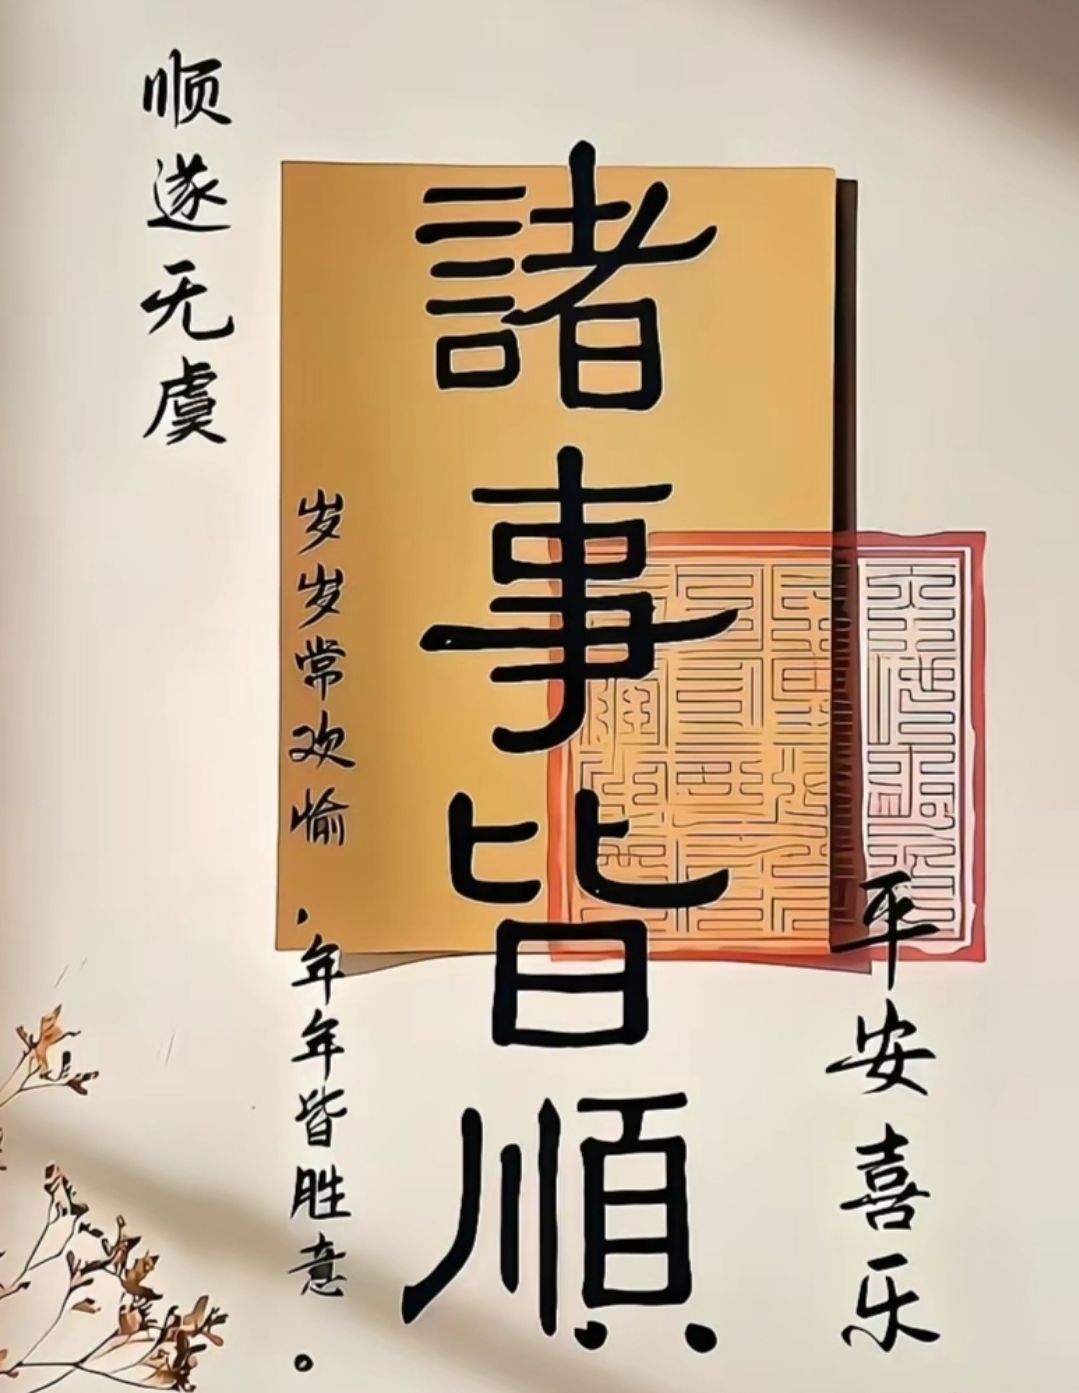 諸事皆順
顺遂无虞
岁岁常欢愉，年年皆胜意。
平安喜乐